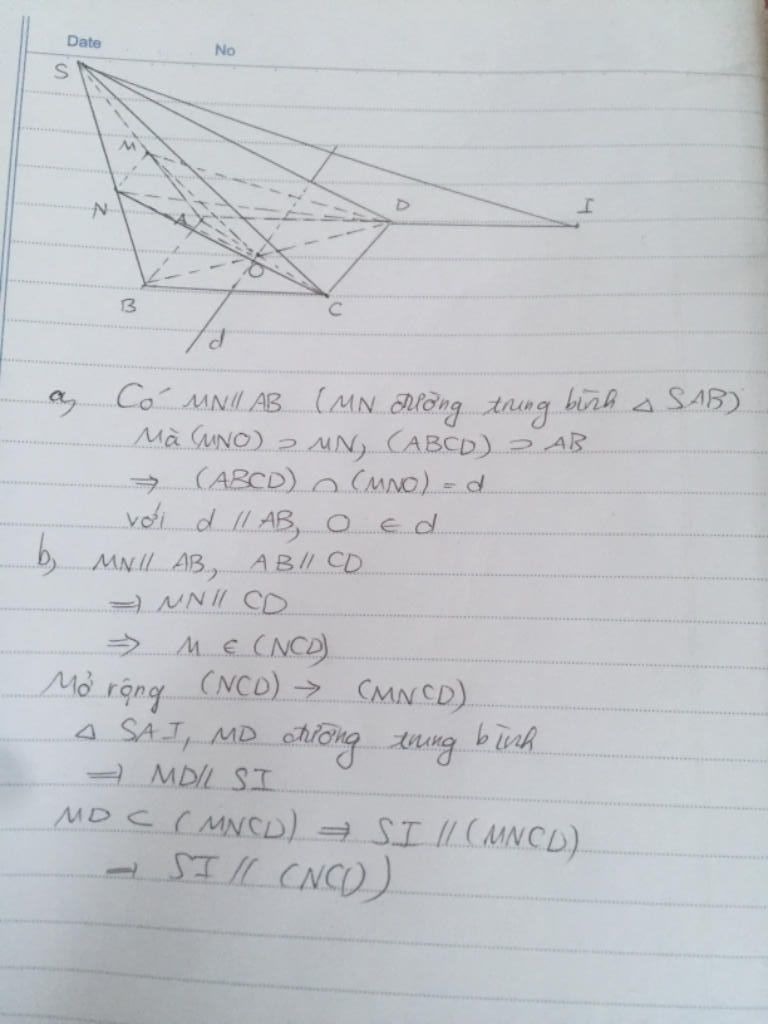 Date No
S
M
N
A
D
I
O
B
C
d
a, Có MN // AB (MN đường trung bình △ SAB)
Mà (MNO) ⊃ MN, (ABCD) ⊃ AB
⇒ (ABCD) ∩ (MNO) = d
với d // AB, O ∈ d
b, MN // AB, AB // CD
⇒ MN // CD
⇒ M ∈ (NCD)
Mở rộng (NCD) → (MNCD)
△ SAI, MD đường trung bình
⇒ MD // SI
MD ⊂ (MNCD) ⇒ SI // (MNCD)
→ SI // (NCD)